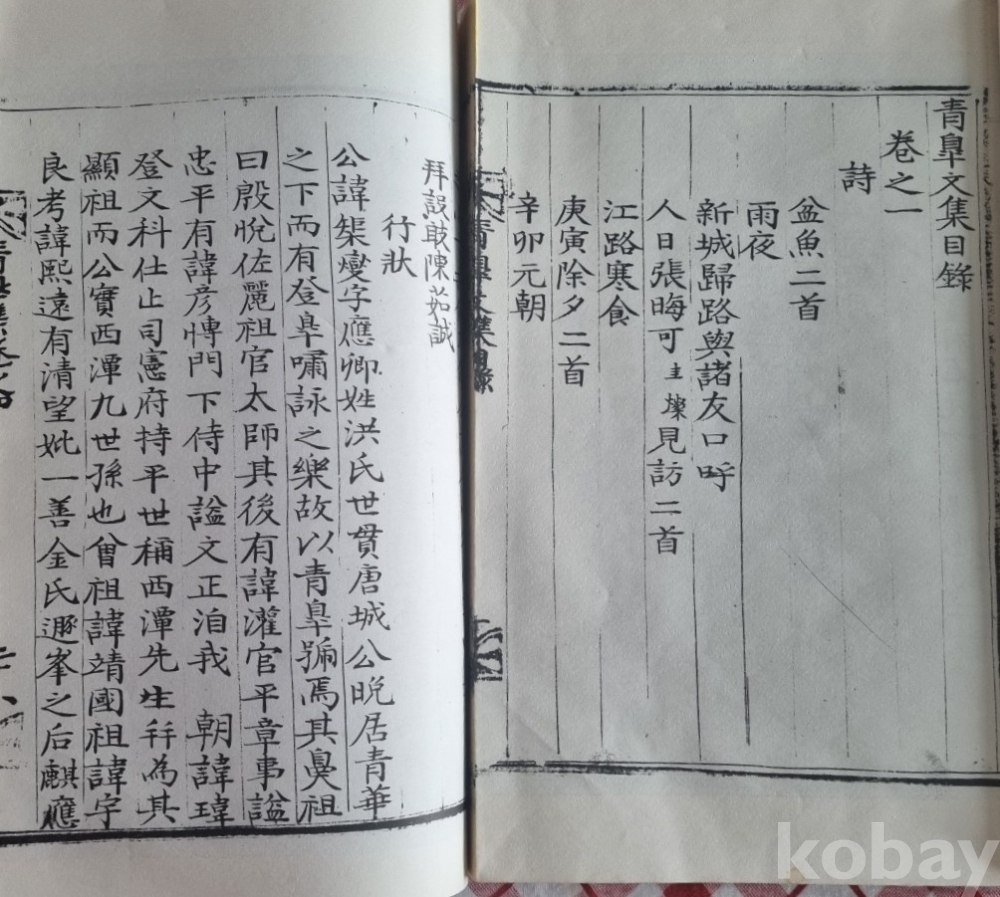 青皐文集目錄
卷之一
詩
盆魚二首
雨夜
新城歸路與諸友口呼
人日張晦可主爕見訪二首
江路寒食
庚寅除夕二首
辛卯元朝
青皐文集目錄
拜設敢陳茹誠
行狀
公諱槼爕字應卿姓洪氏世貫唐城公晩居青華
之下而有登皐嘯詠之樂故以青皐號焉其鼻祖
曰殷悅佐麗祖官太師其後有諱灌官平章事諡
忠平有諱彦愽門下侍中諡文正洎我 朝諱瑋
登文科仕止司憲府持平世稱西潭先生於爲其
顯祖而公實西潭九世孫也曾祖諱靖國祖諱宇
良考諱熙遠有清望妣一善金氏遯峯之后麒應
kobay